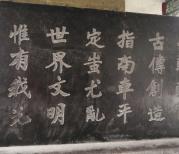 古傳創造
指南車平
定蚩尤亂
世界文明
惟有我先